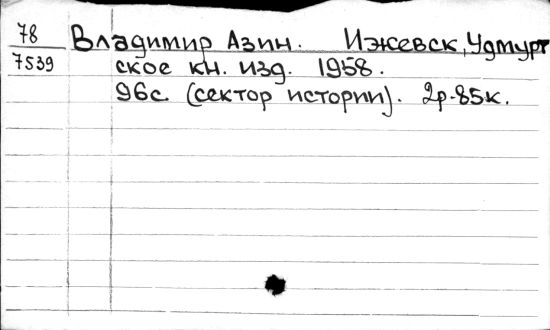 78 Владимир Азин. Ижевск, Удмурт
7539 ское кн. изд. 1958.
96с. (сектор истории). 2р.85к.